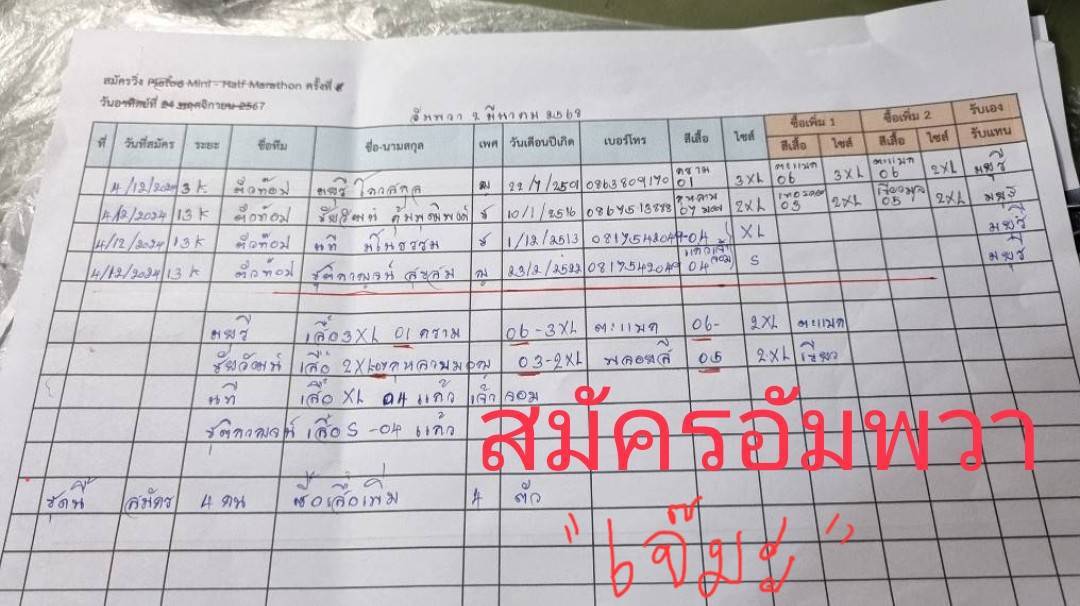 สมัครวิ่ง Mini - Half Marathon ครั้งที่
วันอาทิตย์ที่ 24 พฤศจิกายน 2567
อัมพวา 2 มีนาคม 2568
ที่ วันที่สมัคร ระยะ ชื่อทีม ชื่อ-นามสกุล เพศ วันเดือนปีเกิด เบอร์โทร สีเสื้อ ไซส์ ซื้อเพิ่ม 1 ซื้อเพิ่ม 2 รับเอง
สีเสื้อ ไซส์ สีเสื้อ ไซส์ รับแทน
4/12/2024 3K ติวท้อป มยุรี ญ 22/7/2501 0863809170 คราม 01 3XL ตะแบก 06 3XL ตะแบก 06 2XL มยุรี
4/12/2024 13K ติวท้อป ชัยวัฒน์ ช 10/1/2516 กุหลาบ 07 มอญ 2XL 03 2XL 05 2XL มยุรี
4/12/2024 13K ติวท้อป นที มโนธรรม ช 1/12/2513 0817542049 04 XL มยุรี
4/12/2024 13K ติวท้อป ชุติกาญจน์ ญ 23/2/2522 0817542049 04 S มยุรี
มยุรี เสื้อ 3XL 01 คราม 06-3XL ตะแบก 06- 2XL ตะแบก
ชัยวัฒน์ เสื้อ 2XL 07 กุหลาบมอญ 03-2XL พลอยสี 05 2XL เขียว
นที เสื้อ XL 04 แก้ว เจ้าจอม
ชุติกาญจน์ เสื้อ S -04 แก้ว
สมัครอัมพวา
ชุดนี้ สมัคร 4 คน ซื้อเสื้อเพิ่ม 4 ตัว
"เจ๊มยุ"